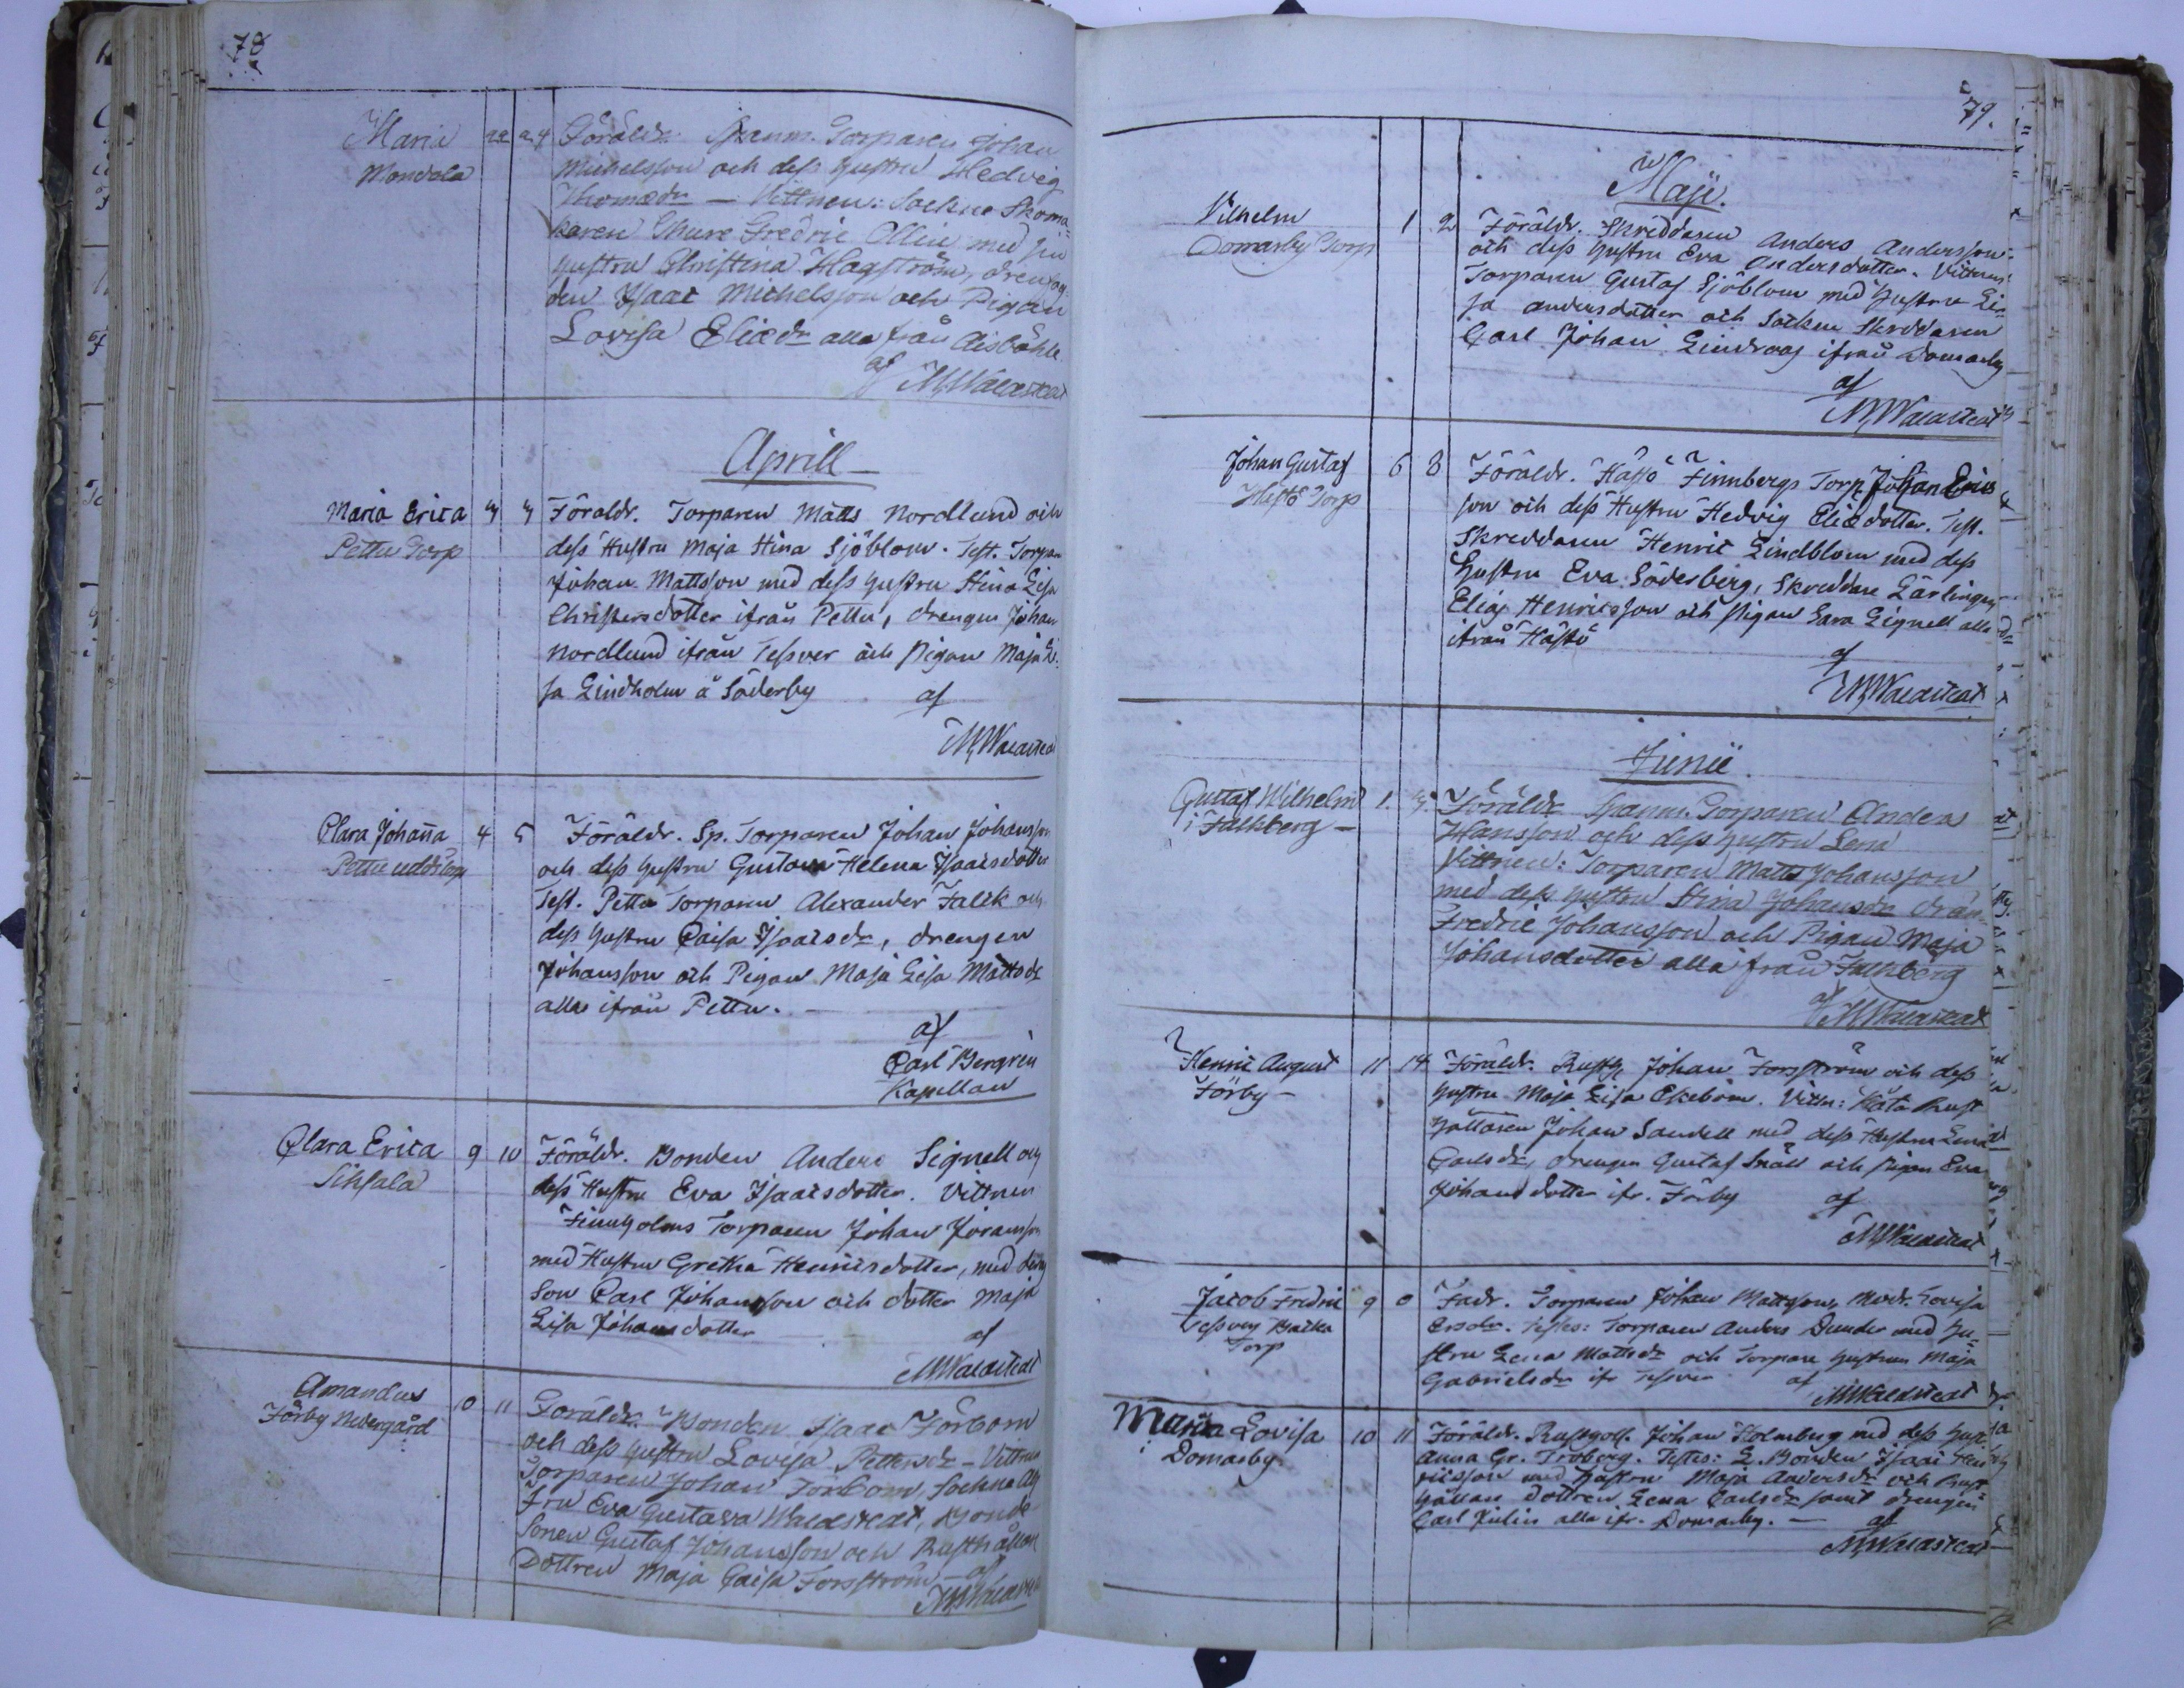 78
Maria 22 24 Föräldr. Spanm. Torparen Johan
Mondola Michelsson och dess hustru Hedvig
Thomædr — Vittnen: Sockne Skoma=
karen Thure Fredric Ollin med sin
hustru Christina Hagström, dreng
den Isaac Michelsson och Pigan
Lovisa Eliædr alla från Aisböhle
af
M Walastedt
Aprill
Maria Erica 3 3 Föräldr. Torparen Matts Nordlund och
Pettu Torp dess Hustru Maja Stina Sjöblom. Test. Torpar
Johan Mattsson med dess hustru Stina Lisa
Christersdotter ifrån Pettu, drengen Johan
Nordlund ifrån Tessver och Pigan Maja Li
sa Lindholm å Söderby af
M Walastedt
Clara Johanna 4 5 Föräldr. Sp. Torparen Johan Johansson
Pettu udds Torp och dess hustru Gustava Helena Isaacsdotter
Test. Pettu Torparen Alexander Falck och
dess hustru Caisa Isaacsdr, drengen
Johansson och Pigan Maja Lisa Mattsdr
alla ifrån Pettu.
af
Carl Bergren
Kapellan
Clara Erica 9 10 Föräldr. Bonden Anders Signell och
Sihsala dess Hustru Eva Isaacsdotter. Vittnen
Finnholms Torparen Johan Joransson
med Hustru Gretha Henricsdotter, med
Son Carl Johansson och dotter Maja
Lisa Johansdotter af
M Walastedt
Amandus 10 11 Föräldr. Bonden Isaac Förbom
Förby Nedergård och dess hustru Lovisa Pettersdr – Vittnen
Torparen Johan Förbom, Sockne
Fru Eva Gustava Walastedt, Bonde
Sonen Gustaf Johansson och Rusthållar
Dottren Maja Caisa Forsström – af
M Walastedt
79.
Maji.
Vilhelm 1 2 Föräldr. Skreddaren Anders Andersson
Domarby Torp och dess hustru Eva Andersdotter. Vittnen:
Torparen Gustaf Sjöblom med hustru Li=
sa Andersdotter och Socken Skreddaren
Carl Johan Lindroos ifrån Domarby
af
M Walastedt
Johan Gustaf 6 8 Föräldr. Hästö Finnbergs Torp. Johan Erics
Hästö Torp son och dess Hustru Hedvig Eliædotter. Test.
Skreddaren Henric Lindblom med dess
hustru Eva Söderberg, Skreddare Lärlingen
Elias Henricsson och Pigan Sara Lignell alla
ifrån Hästö
af
M Walastedt
Junii
Gustaf Wilhelm 1. 3. Föräldr Spanm. Torparen Anders
i Falkberg – Hansson och dess hustru Lena
Vittnen: Torparen Matts Johansson
med dess hustru Stina Johansdr drän
Fredric Johansson och Pigan Maja
Johansdotter alla från Falkberg
af
M Walastedt
Henric August 11 14 Föräldr. Rusth Johan Forsström och dess
Förby – hustru Maja Lisa Ekebom. Vittn: Rust
hållaren Johan Sandell med dess Hustru Lena
Carlsdr, drengen Gustaf Snäll och Pigan Eva
Johansdotter ifr. Förby af
M Walastedt
Jacob Fredric 9 0 Fadr. Torparen Johan Mattsson, Modr. Lovisa
Tessver Backa Ersdr. Testes: Torparen Anders Dunder med hu=
Torp stru Lena Mattsdr och Torpare hustrun Maja
Gabrielsdr ifr Tessver af
M Walastedt
Maria Lovisa 10 11 Föräldr. Rusthåll. Johan Holmberg med dess hust.
i Domarby Anna Gr. Troberg. Testes: L. Bonden Isaac Hen
ricsson med Hustru Maja Andersdr och Rust
hållare Dottren Lena Carlsdr samt drengen
Carl Julin alla ifr. Domarby. — af
M Walastedt